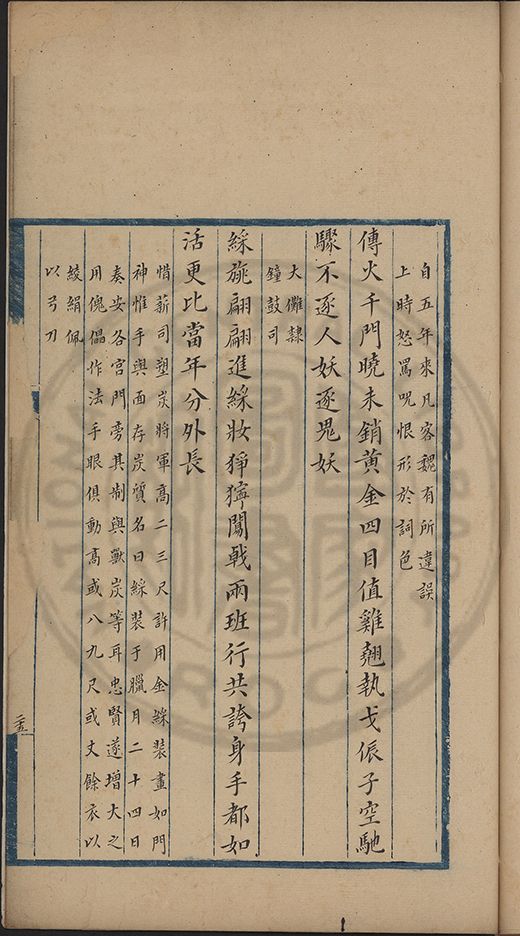 自五年來凡客魏有所違誤
上時怒罵咒恨形於詞色
傳火千門曉未銷黃金四目值雞翹執戈侲子空馳
驟不逐人妖逐鬼妖
大儺隸
鐘鼓司
綵旎翩翩進綵妝猙獰闖戟兩班行共誇身手都如
活更比當年分外長
惜薪司塑炭將軍高二三尺許用金綵裝畫如門
神惟手與面存炭質名曰綵裝于臘月二十四日
奏安各宮門旁其制與獸炭等耳忠賢遂增大之
用傀儡作法手眼俱動高或八九尺或丈餘衣以
綾絹佩
以弓刀
二五